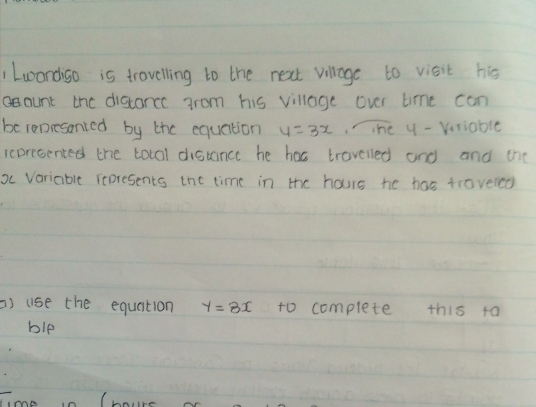 Lwandiso is travelling to the next village to visit his
aunt the distance from his village over time can
be represented by the equation y=3x. The y-variable
represented the total distance he has travelled and and the
x variable represents the time in the hours he has traveled
a) use the equation y=3x to complete this ta
ble
Time in (hours